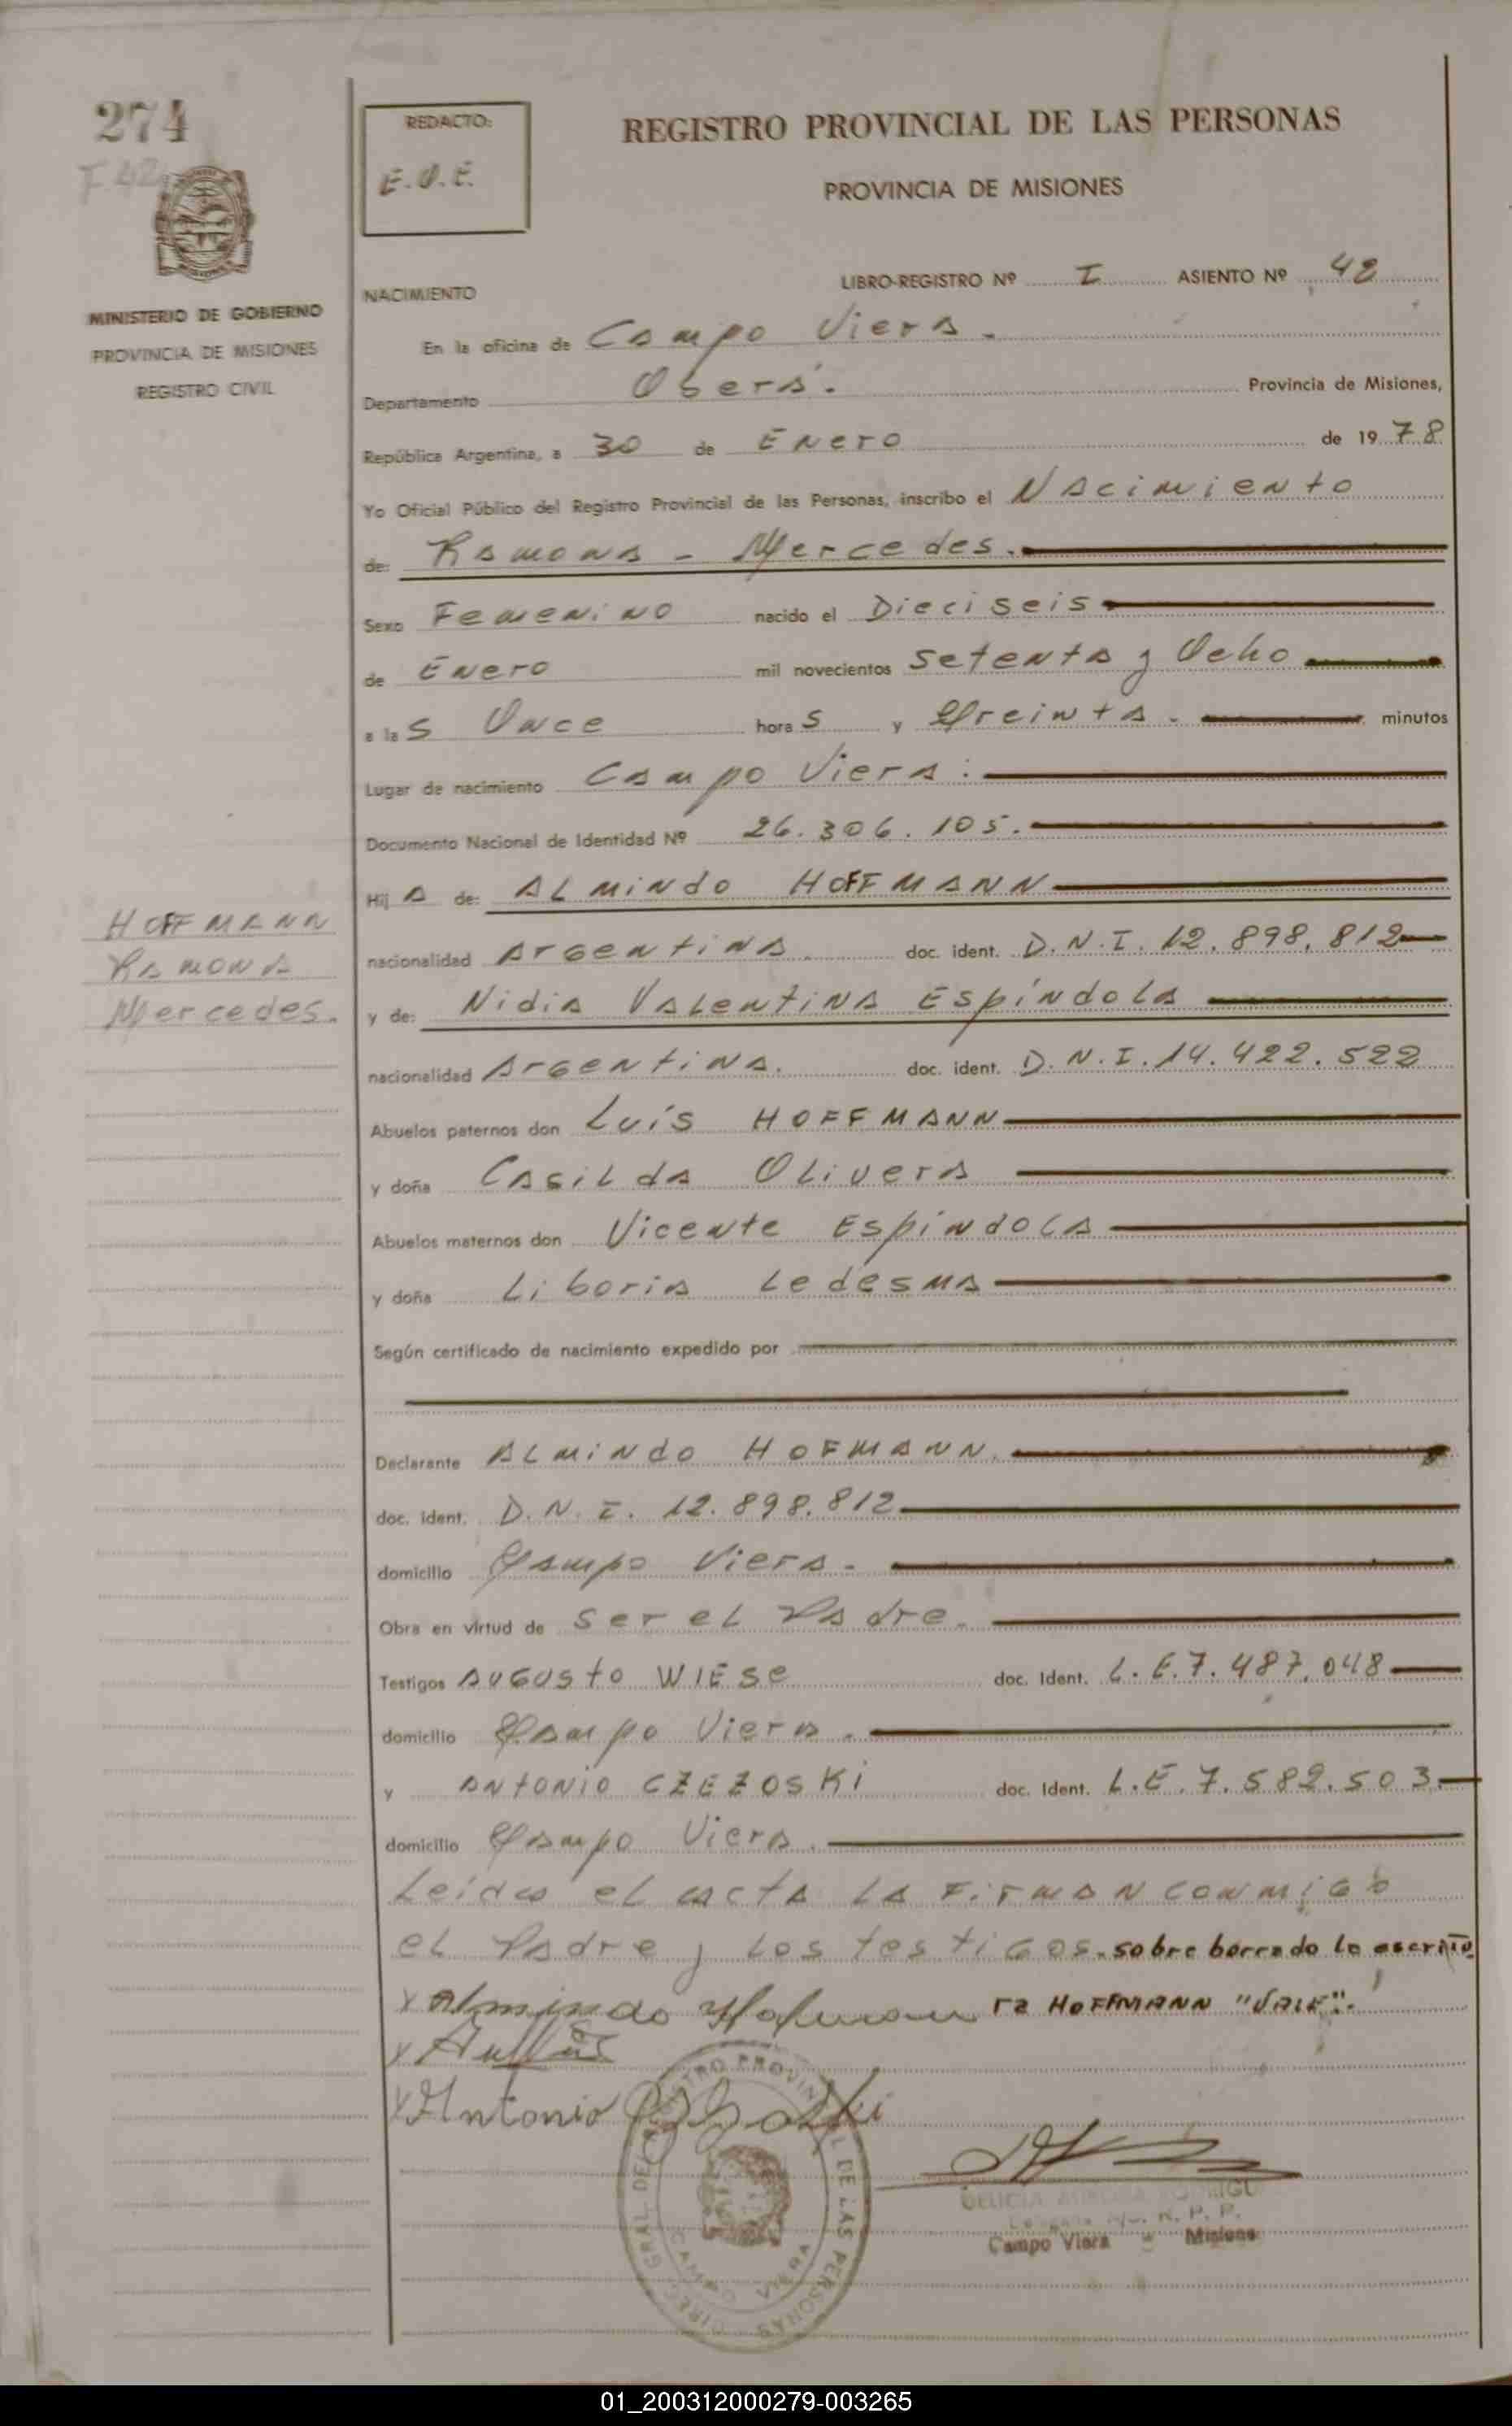 274
F 42
REDACTO:
E.V.E.
REGISTRO PROVINCIAL DE LAS PERSONAS
PROVINCIA DE MISIONES
MINISTERIO DE GOBIERNO
PROVINCIA DE MISIONES
REGISTRO CIVIL
NACIMIENTO
LIBRO-REGISTRO Nº I ASIENTO Nº 42
En la oficina de Campo Viera.
Departamento Oberá. Provincia de Misiones,
República Argentina, a 30 de Enero de 1978
Yo Oficial Público del Registro Provincial de las Personas, inscribo el Nacimiento
de: Ramona - Mercedes.
Sexo Femenino nacido el Dieciseis
de Enero mil novecientos setenta y Ocho
a las Once horas y Treinta. minutos
Lugar de nacimiento Campo Viera.
Documento Nacional de Identidad Nº 26.306.105.
Hija de: ALMindo HOFFMANN
nacionalidad Argentina. doc. ident. D.N.I. 12.898.812
y de: Nidia VALentina Espíndola
nacionalidad Argentina. doc. ident. D.N.I. 14.422.522
Abuelos paternos don Luís HOFFMANN
y doña CasiLda OLivera
Abuelos maternos don Vicente Espíndola
y doña Liboria Ledesma
Según certificado de nacimiento expedido por
Declarante ALMindo HOFMANN.
doc. ident. D.N.I. 12.898.812
domicilio Campo Viera.
Obra en virtud de ser eL Padre.
Testigos AUGUSto WIESe doc. Ident. L.E.7.487.048
domicilio Campo Viera.
y ANtONiO CZEZOSKi doc. Ident. L.E.7.582.503
domicilio Campo Viera.
Leída el acta la firman conmigo
eL Padre y Los testigos. sobre borrado lo escrito
x Almindo Hofmann ra HOFFMANN "VALE".
x
x Antonio
HOFFMANN
Ramona
Mercedes.
DIREC. GRAL DEL REGISTRO PROVINCIAL DE LAS PERSONAS
CAMPO VIERA
DELICIA
R. P. P.
Campo Viera - Misiones
01_200312000279-003265